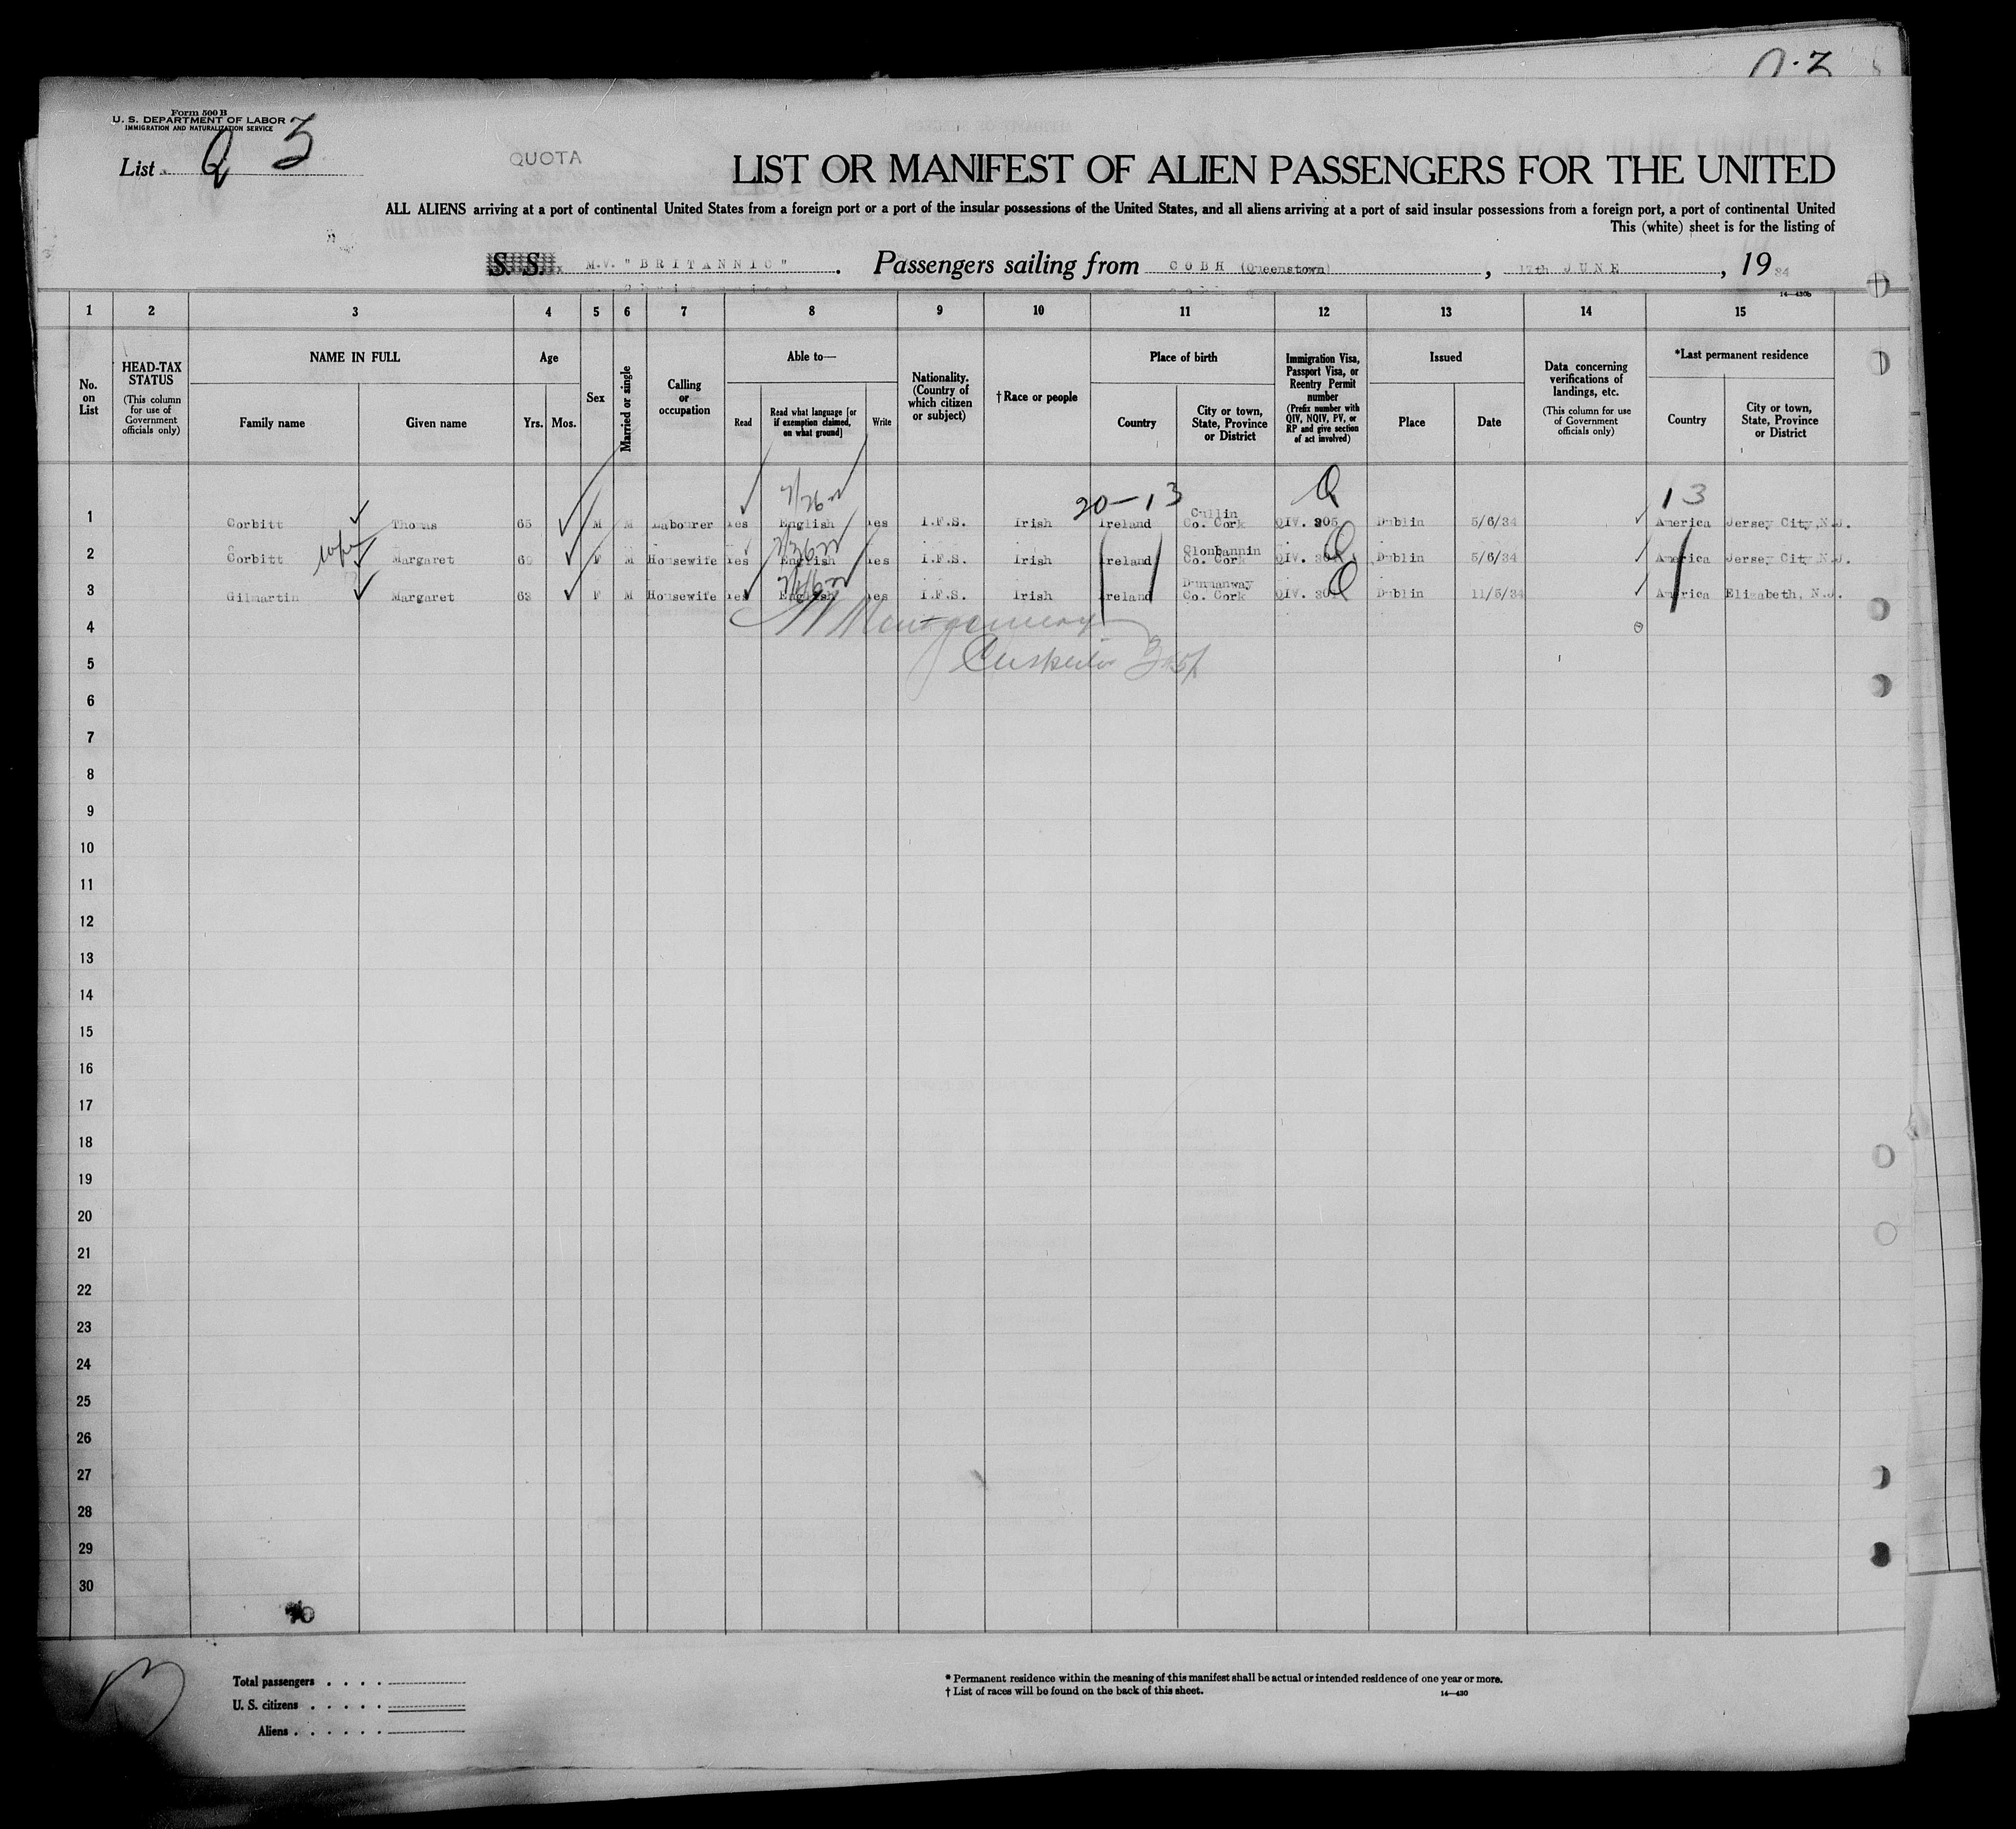 Q·3
Form 500 B
U. S. DEPARTMENT OF LABOR
IMMIGRATION AND NATURALIZATION SERVICE
List Q 3
QUOTA
LIST OR MANIFEST OF ALIEN PASSENGERS FOR THE UNITED
ALL ALIENS arriving at a port of continental United States from a foreign port or a port of the insular possessions of the United States, and all aliens arriving at a port of said insular possessions from a foreign port, a port of continental United
This (white) sheet is for the listing of
S. S. M.V. "BRITANNIC". Passengers sailing from COBH (Queenstown), 17th JUNE, 1934
14—430b
1 2 3 4 5 6 7 8 9 10 11 12 13 14 15
No. on List
HEAD-TAX STATUS (This column for use of Government officials only)
NAME IN FULL
Family name Given name
Age
Yrs. Mos.
Sex
Married or single
Calling or occupation
Able to—
Read
Read what language [or if exemption claimed, on what ground]
Write
Nationality. (Country of which citizen or subject)
† Race or people
Place of birth
Country
City or town, State, Province or District
Immigration Visa, Passport Visa, or Reentry Permit number (Prefix number with QIV, NQIV, PV, or RP and give section of act involved)
Issued
Place Date
Data concerning verifications of landings, etc. (This column for use of Government officials only)
*Last permanent residence
Country
City or town, State, Province or District
20—13 Q 13
1 Corbitt Thomas 65 M M Labourer Yes English Yes I.F.S. Irish Ireland Cullin Co. Cork QIV. 305 Dublin 5/6/34 America Jersey City, N.J.
2 Corbitt wife Margaret 60 F M Housewife Yes English Yes I.F.S. Irish Ireland Clonbannin Co. Cork QIV. Q Dublin 5/6/34 America Jersey City N.J.
3 Gilmartin Margaret 63 F M Housewife Yes English Yes I.F.S. Irish Ireland Dunmanway Co. Cork QIV. Q Dublin 11/5/34 America Elizabeth, N.J.
4 Montgomery
5
6
7
8
9
10
11
12
13
14
15
16
17
18
19
20
21
22
23
24
25
26
27
28
29
30
Total passengers . . . .
U. S. citizens . . . . .
Aliens . . . . . .
* Permanent residence within the meaning of this manifest shall be actual or intended residence of one year or more.
† List of races will be found on the back of this sheet.
14—430